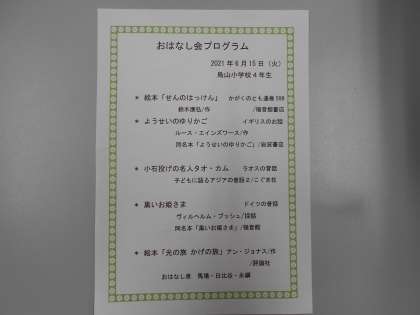 おはなし会プログラム
2021年6月15日（火）
烏山小学校4年生
* 絵本「せんのはっけん」 かがくのとも通巻599
鈴木康弘/作 /福音館書店
* ようせいのゆりかご イギリスのお話
ルース・エインズワース/作
同名本「ようせいのゆりかご」/岩波書店
* 小石投げの名人タオ・カム ラオスの昔話
子どもに語るアジアの昔話2/こぐま社
* 黒いお姫さま ドイツの昔話
ヴィルヘルム・ブッシュ/採話
同名本「黒いお姫さま」/福音館
* 絵本「光の旅 かげの旅」アン・ジョナス/作
/評論社
おはなし泉 馬場・日比谷・永瀬